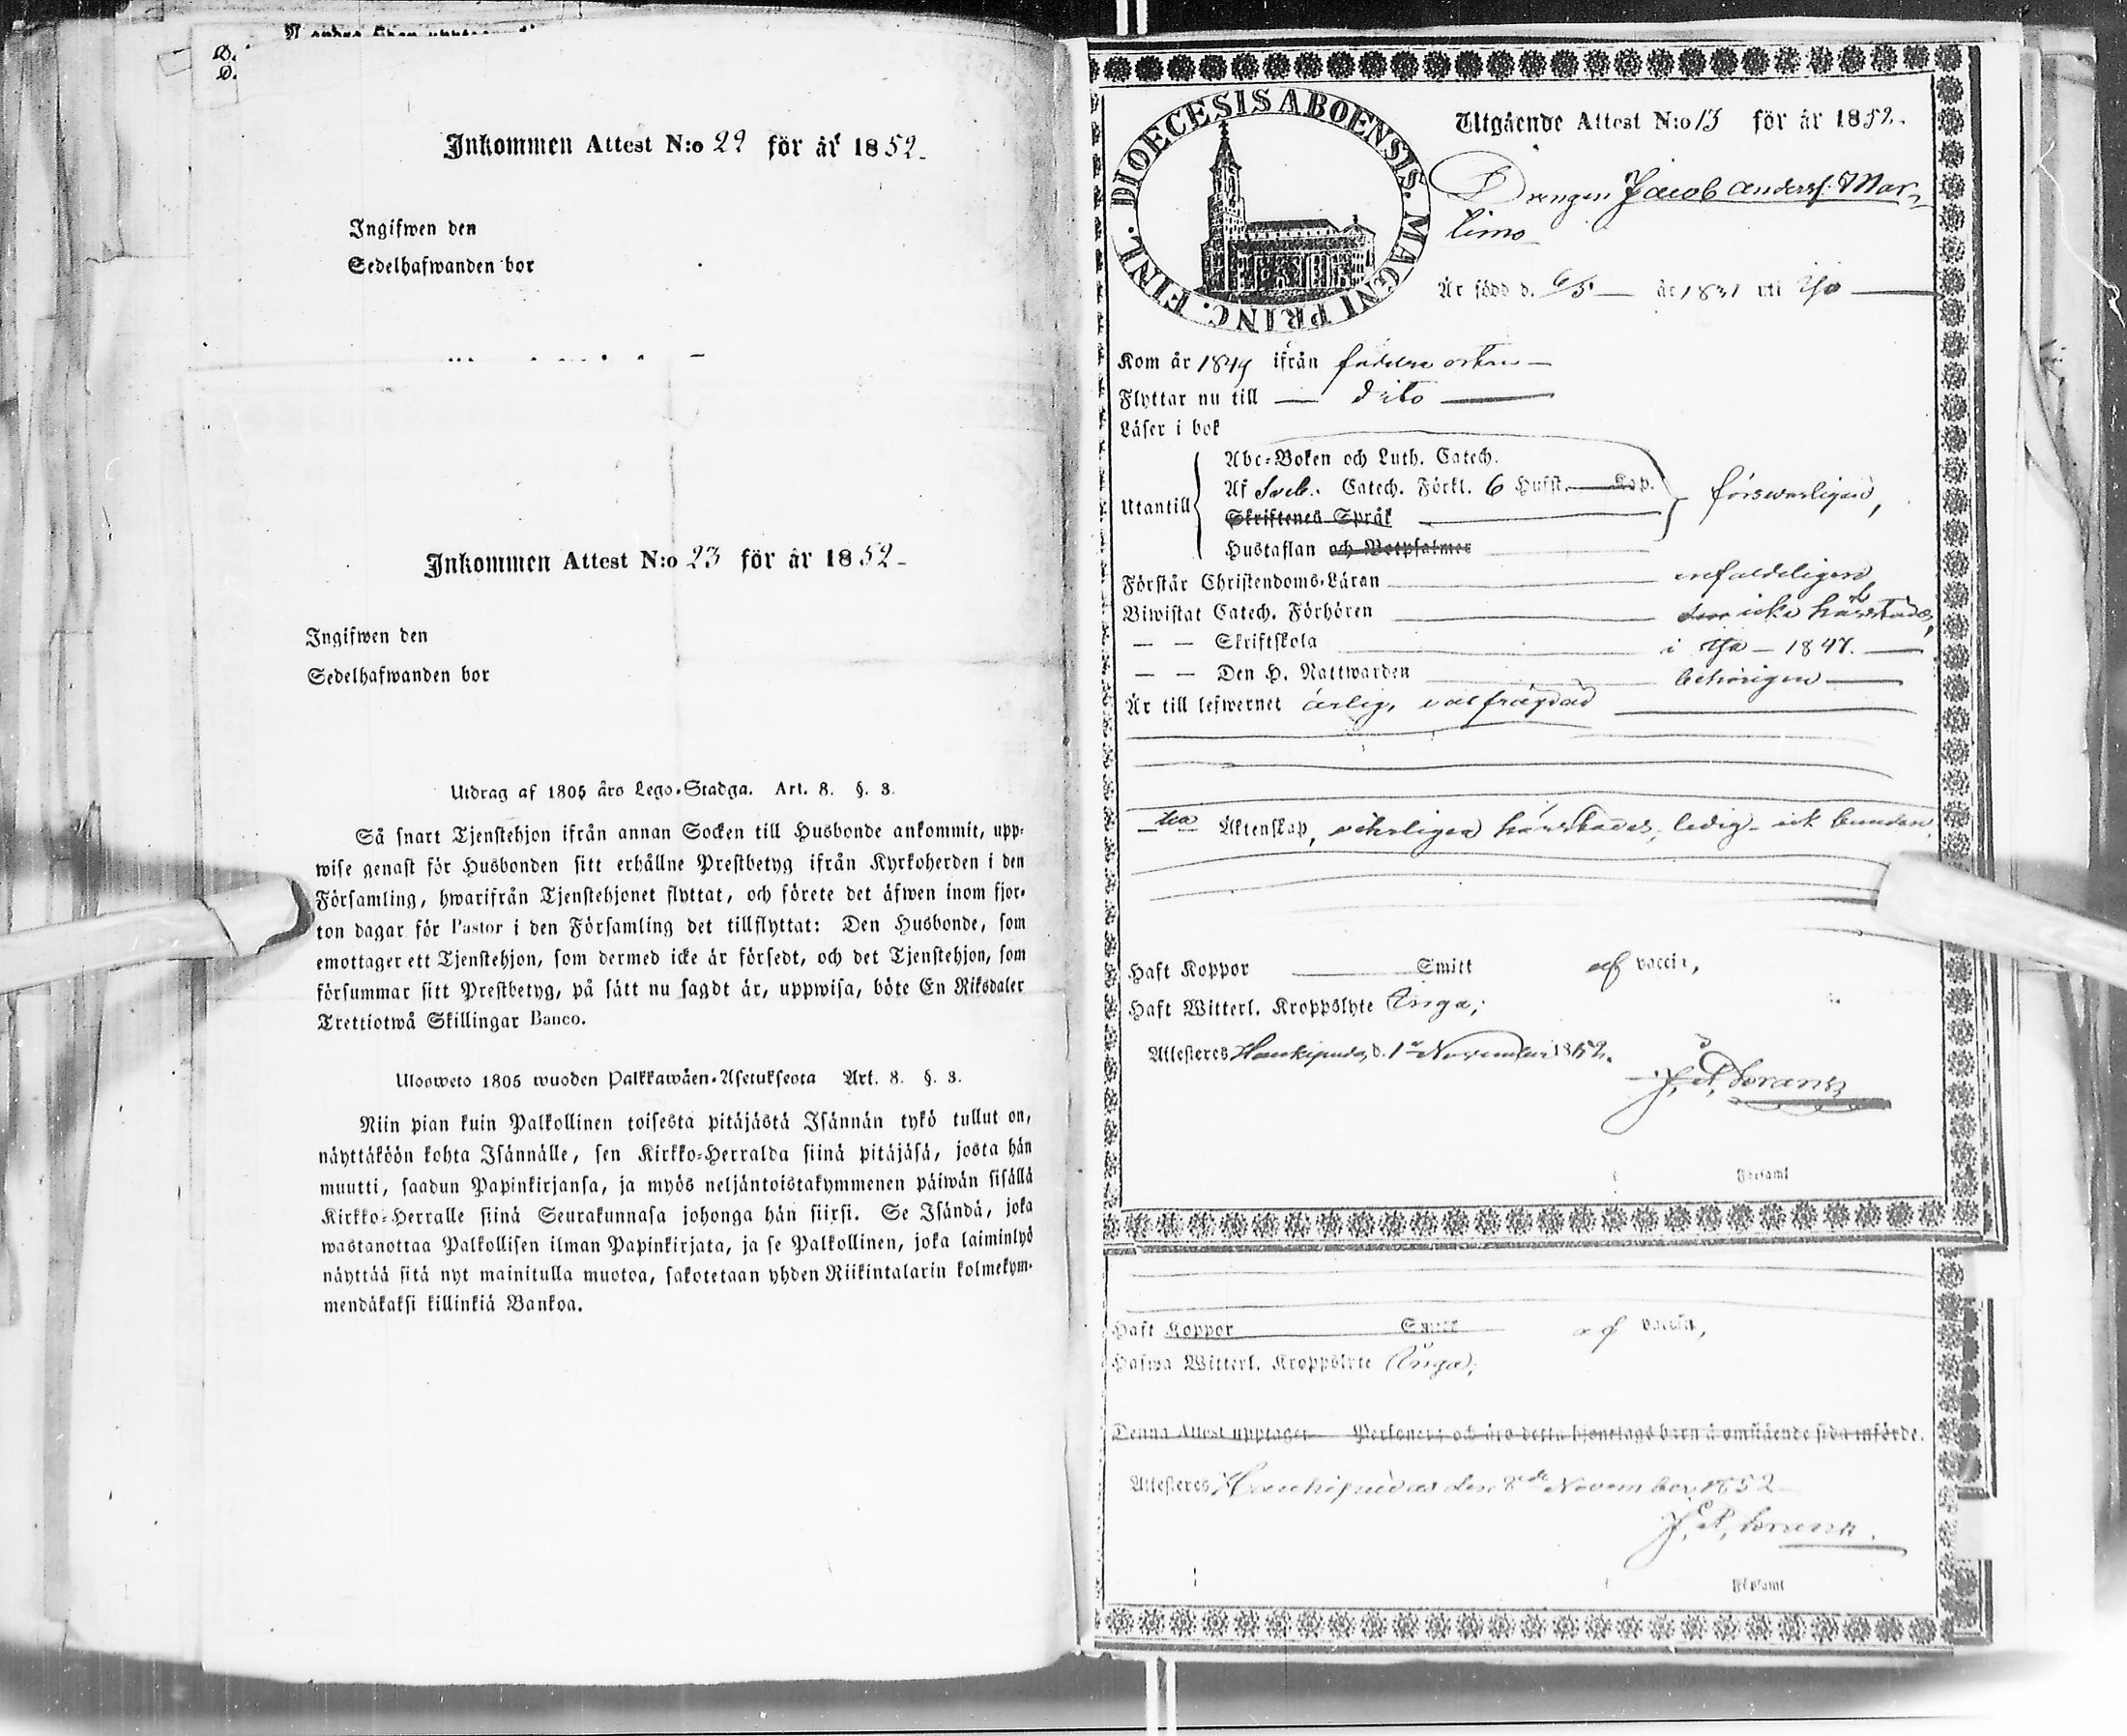 Inkommen Attest N:o 22 för år 1852.
Ingifwen den
Sedelhafwanden bor
Inkommen Attest N:o 23 för år 1852.
Ingifwen den
Sedelhafwanden bor
Utdrag af 1805 års Lego-Stadga. Art. 8. §. 3.
Så snart Tjenstehjon ifrån annan Socken till Husbonde ankommit, upp-
wise genast för Husbonden sitt erhållne Prestbetyg ifrån Kyrkoherden i den
Församling, hwarifrån Tjenstehjonet flyttat, och förete det äfwen inom fjor-
ton dagar för Pastor i den Församling det tillflyttat: Den Husbonde, som
emottager ett Tjenstehjon, som dermed icke är försedt, och det Tjenstehjon, som
försummar sitt Prestbetyg, på sätt nu sagdt är, uppwisa, böte En Riksdaler
Trettiotwå Skillingar Banco.
Ulosweto 1805 wuoden Palkkawäen-Asetuksesta Art. 8. §. 3.
Niin pian kuin Palkollinen toisesta pitäjästä Isännän tykö tullut on,
näyttäköön kohta Isännälle, sen Kirkko-Herralda siinä pitäjäsä, josta hän
muutti, saadun Papinkirjansa, ja myös neljäntoistakymmenen päiwän sisällä
Kirkko-Herralle siinä Seurakunnasa johonga hän siirsi. Se Isändä, joka
wastanottaa Palkollisen ilman Papinkirjata, ja se Palkollinen, joka laiminlyö
näyttää sitä nyt mainitulla muotoa, sakotetaan yhden Riikintalarin kolmekym-
mendäkaksi killinkiä Bankoa.
DIOECESIS ABOENSIS. MAGNI PRINC. FINL.
Utgående Attest N:o 13 för år 1852.
Drengen Jacob Anderss. Mar-
timo
Är född d. 6/5 år 1831 uti Ijo
Kom år 1849 ifrån födelse orten
Flyttar nu till dito
Läser i bok
Abc-Boken och Luth. Catech.
Utantill Af Sveb. Catech. Förkl. 6 Hufst. Kap. försvarligen,
Skriftenes Språk
Hustaflan och Botpsalmer
Förstår Christendoms-Läran enfaldeligen
Biwistat Catech. Förhören icke härstädes,
— — Skriftskola i Ijo 1847.
— — Den H. Nattwarden behörigen
Är till lefwernet ärlig, välfrägdad
till Äktenskap, vehrligen härstädes, ledig ock bunden
Haft Koppor Smitt af vaccin,
Haft Witterl. Kroppslyte Inga;
Attesteras Haukipudas d. 1 November 1852.
J. P. Borans
Församl
Haft Koppor Smitt af vaccin,
Hafwa Witterl. Kroppslyte Inga;
Denna Attest upptager Personer; och äro detta hjonelags barn å omstående sida införde.
Attesteras Haukipudas den 8de November 1852
Församl